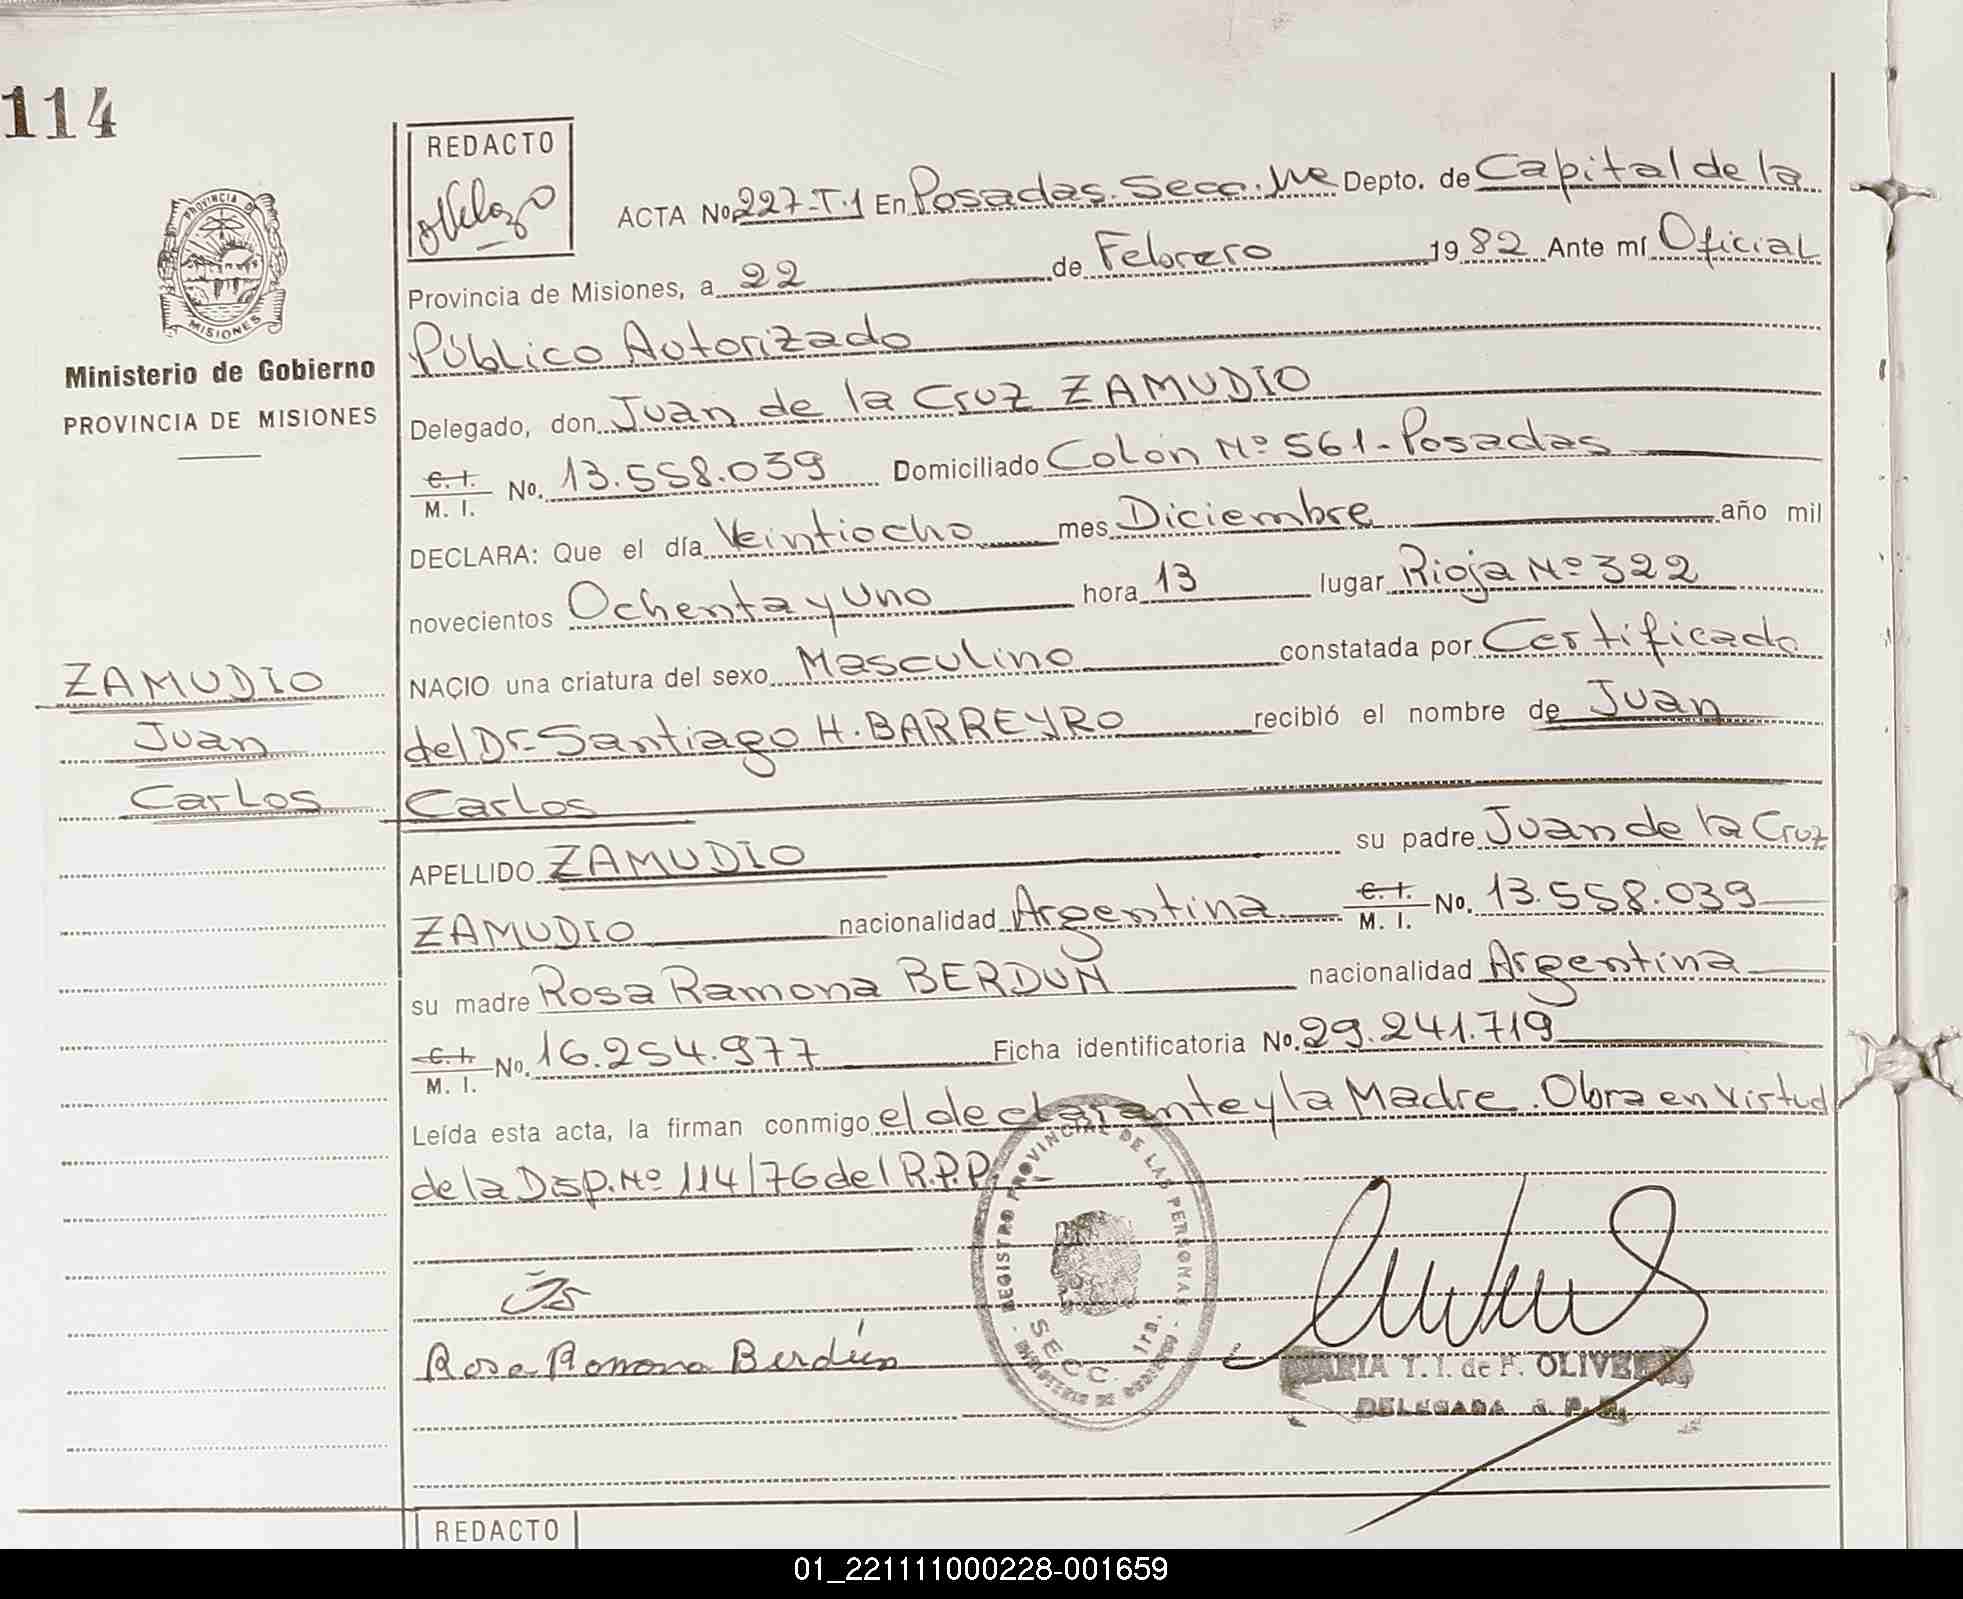 114
REDACTO
ACTA No. 227-T.1 En Posadas. Secc. 1ra Depto. de Capital de la
Provincia de Misiones, a 22 de Febrero 1982 Ante mí Oficial
Público Autorizado
Delegado, don Juan de la Cruz ZAMUDIO
C. I. M. I. No. 13.558.039 Domiciliado Colón Nº 561 - Posadas
DECLARA: Que el día Veintiocho mes Diciembre año mil
novecientos Ochenta y Uno hora 13 lugar Rioja Nº 322
NACIO una criatura del sexo Masculino constatada por Certificado
del Dr. Santiago H. BARREYRO recibió el nombre de Juan
Carlos
APELLIDO ZAMUDIO su padre Juan de la Cruz
ZAMUDIO nacionalidad Argentina C. I. M. I. No. 13.558.039
su madre Rosa Ramona BERDUN nacionalidad Argentina
C. I. M. I. No. 16.254.977 Ficha identificatoria No. 29.241.719
Leída esta acta, la firman conmigo el declarante y la Madre. Obra en virtud
de la Disp. Nº 114/76 del R.P.P. -
Rosa Ramona Berdún
REGISTRO PROVINCIAL DE LAS PERSONAS
SECC. 1ra.
MINISTERIO DE GOBIERNO
MARIA T. I. de F. OLIVERA
DELEGADA
REDACTO
PROVINCIA DE
MISIONES
Ministerio de Gobierno
PROVINCIA DE MISIONES
ZAMUDIO
Juan
Carlos
01_221111000228-001659